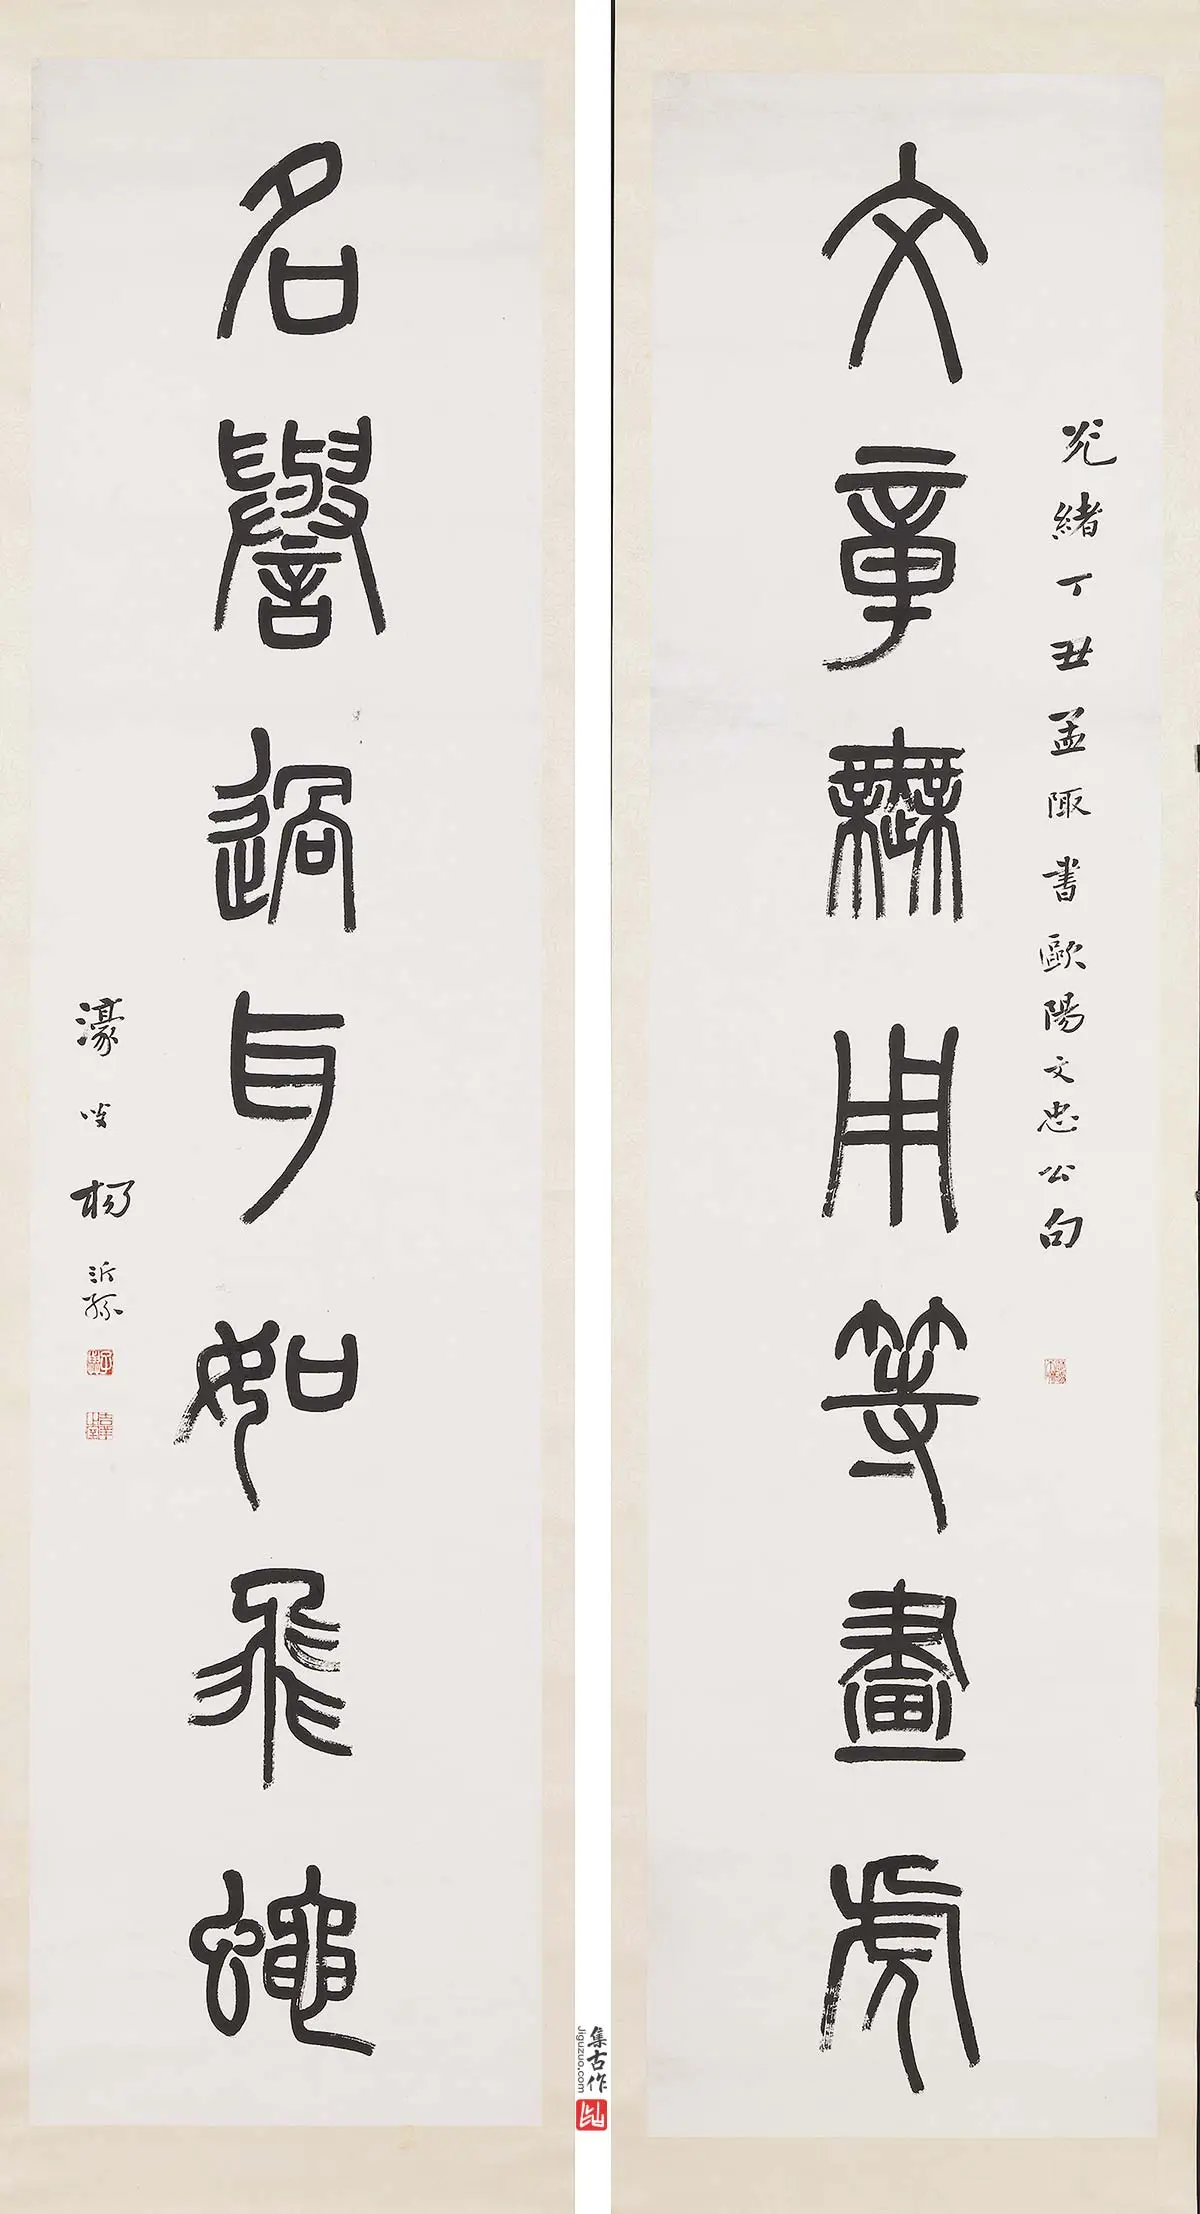 光緒丁丑孟陬書歐陽文忠公句
文章無用等畫虎
名譽過耳如飛蠅
濠叟楊沂孫
集古作
Jiguzuo.com